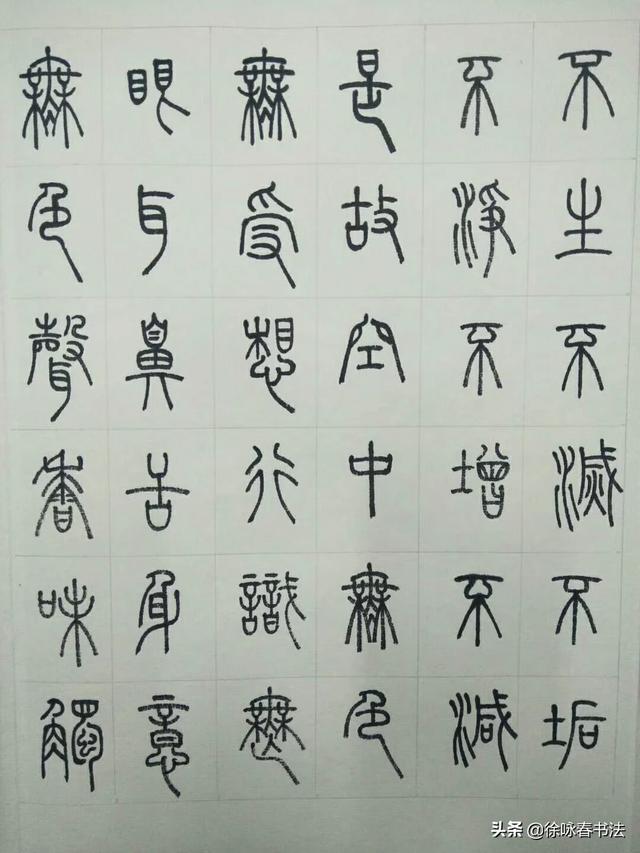 不生不滅不垢
不淨不增不減
是故空中無色
無受想行識無
眼耳鼻舌身意
無色聲香味觸
头条 @徐咏春书法